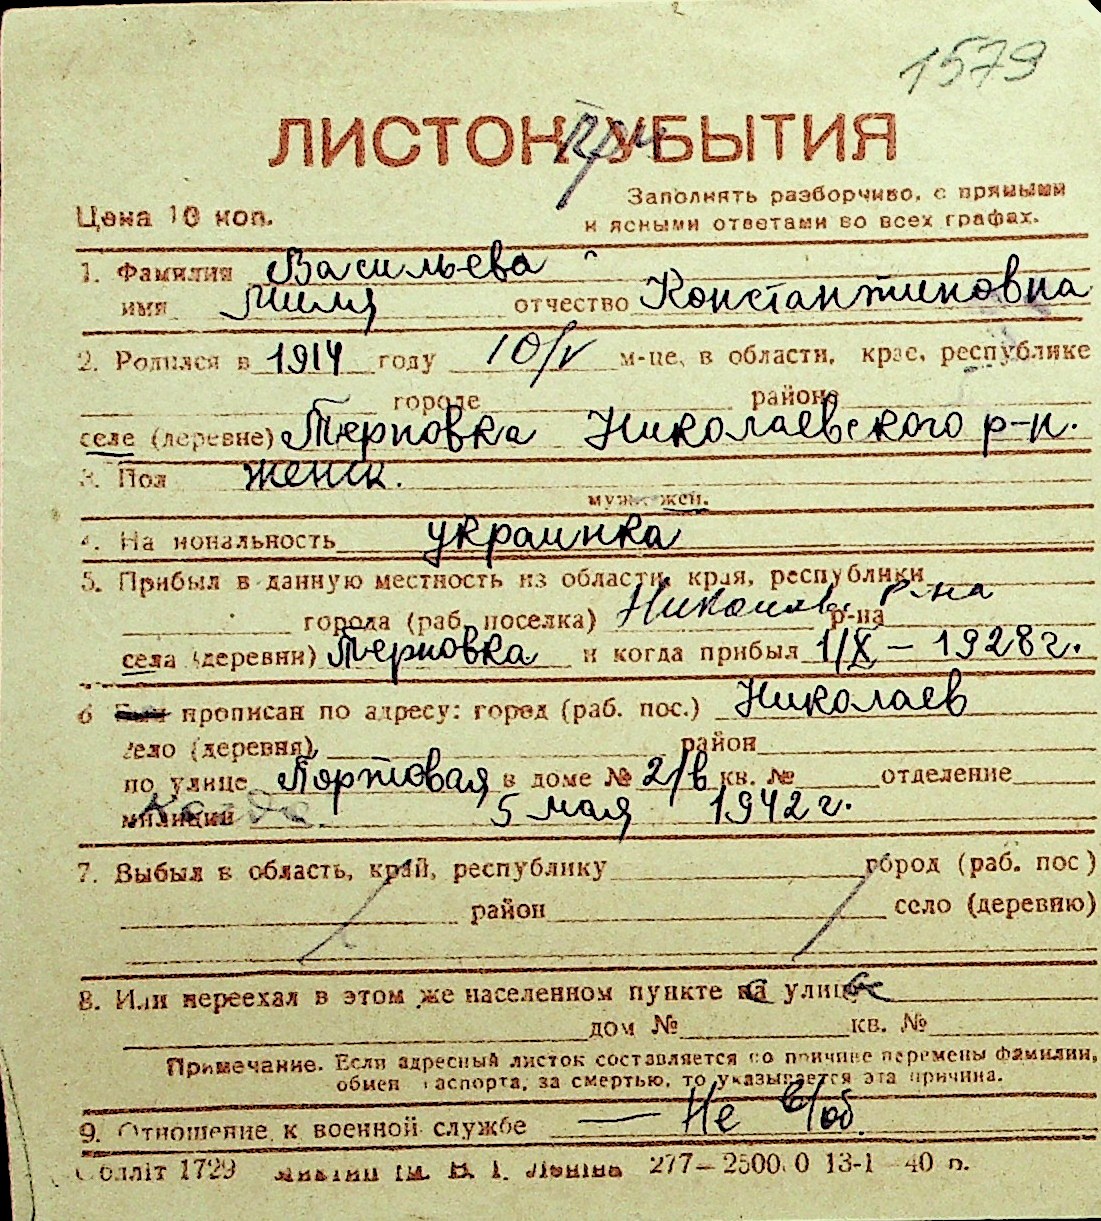 1579
ЛИСТОК При УБЫТИЯ
Заполнять разборчиво, с прямыми
Цена 10 коп.
и ясными ответами во всех графах.
1. Фамилия Васильева
имя Миля отчество Константиновна
2. Родился в 1914 году 10/V м-це, в области, крае, республике
городе района
селе (деревне) Терновка Николаевского р-н.
3. Пол женск.
муж. жен.
4. На иональность украинка
5. Прибыл в данную местность из области, края, республики
города (раб. поселка) Николаев. р-на р-на
села (деревни) Терновка и когда прибыл 1/X – 1928 г.
6 Был прописан по адресу: город (раб. пос.) Николаев
село (деревня) район
по улице Портовая в доме № 2/в кв. № отделение
милиции Когда 5 мая 1942 г.
7. Выбыл в область, край, республику город (раб. пос)
район село (деревню)
8. Или переехал в этом же населенном пункте на улицу
дом № кв. №
Примечание. Если адресный листок составляется по причине перемены фамилии,
обмен паспорта, за смертью, то указывается эта причина.
9. Отношение к военной службе — Не в/об.
Облліт 1729 ім. В. І. Леніна 277–2500.0 13-1 40 р.